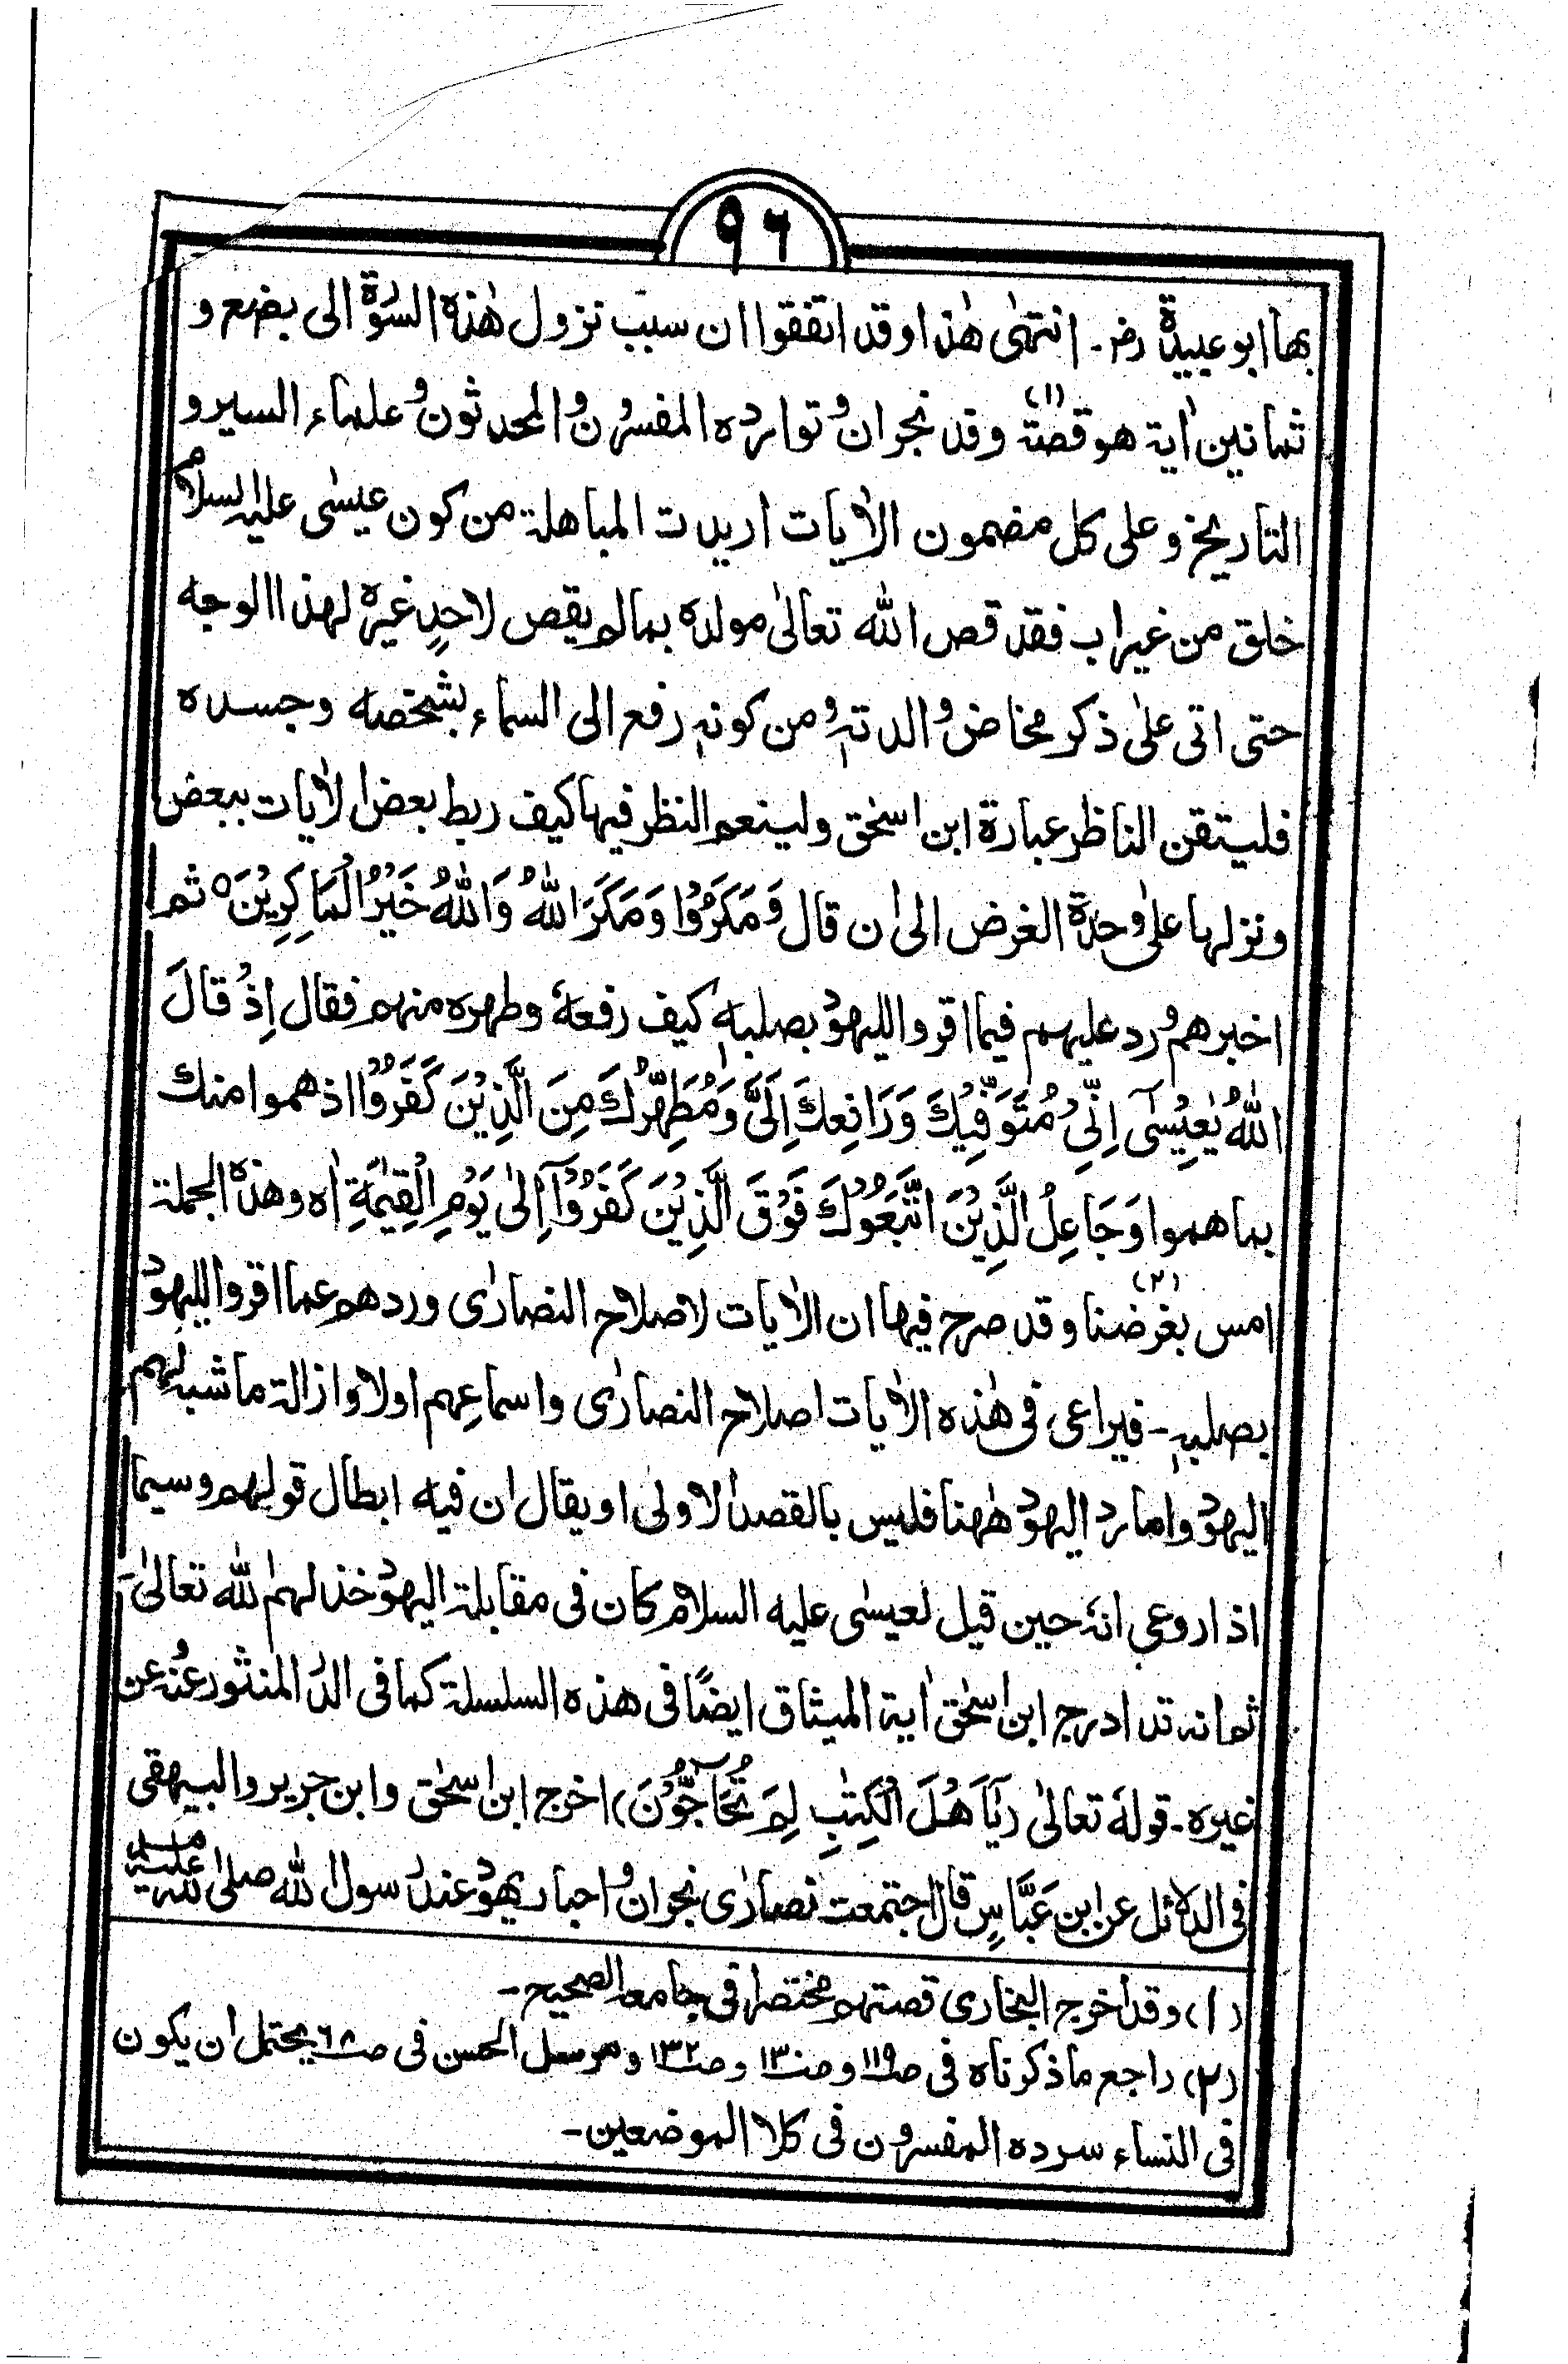 ٩٦
بها ابو عبيدة رضـ ـ انتهىٰ هٰذا وقد اتفقوا ان سبب نزول هٰذه السورة الى بضع و
ثمانين اٰية هو قصة (١) وفد نجران و توارده المفسرون و المحدثون و علماء السير و
التاريخ و على كل مضمون الاٰيات اريدت المباهلة من كون عيسٰى عليه السلام
خلق من غير اب فقد قص الله تعالىٰ مولده بما لم يقص لاحدٍ غيره لهذا الوجه
حتى اتى علىٰ ذكر مخاض والدته ومن كونه رفع الى السماء بشخصه وجسده
فليتقن الناظر عبارة ابن اسحٰق ولينعم النظر فيها كيف ربط بعض الاٰيات ببعض
ونزلها علىٰ وحدة الغرض الىٰ ان قال وَمَكَرُوْا وَمَكَرَ اللّٰهُ وَاللّٰهُ خَيْرُ الْمَاكِرِيْنَ ٥ ثم
اخبرهم ورد عليهم فيما اقروا لليهود بصلبه كيف رفعهٗ وطهره منهم فقال اِذْ قَالَ
اللّٰهُ يٰعِيْسٰٓى اِنِّىْ مُتَوَفِّيْكَ وَرَافِعُكَ اِلَىَّ وَمُطَهِّرُكَ مِنَ الَّذِيْنَ كَفَرُوْا اذ هموا منك
بما هموا وَجَاعِلُ الَّذِيْنَ اتَّبَعُوْكَ فَوْقَ الَّذِيْنَ كَفَرُوْٓا اِلىٰ يَوْمِ الْقِيٰمَةِ اٰه وهذه الجملة
امس بغرضنا (٢) وقد صرح فيها ان الاٰيات لاصلاح النصارٰى وردهم عما اقروا لليهود
بصلبه ـ فيراعى فى هٰذه الاٰيات اصلاح النصارٰى واسماعهم اولا وازالة ما شبه لهم
اليهود واما رد اليهود هٰهنا فليس بالقصد الاولى او يقال ان فيه ابطال قولهم وسيما
اذا روعى انهٗ حين قيل لعيسٰى عليه السلام كان فى مقابلة اليهود خذلهم الله تعالىٰ ـ
ثم انه قد ادرج ابن اسحٰق اٰية الميثاق ايضًا فى هذه السلسلة كما فى الدر المنثور عنه عن
غيره ـ قولهٗ تعالىٰ (يَآ اَهْلَ الْكِتٰبِ لِمَ تُحَآجُّوْنَ) اخرج ابن اسحٰق وابن جرير والبيهقى
فى الدلائل عن ابن عَبَّاسٍ قال اجتمعت نصارٰى نجران و احبار يهود عند رسول الله صلى الله عليه
(١) وقد اخرج البخارى قصتهم مختصرا فى جامعه الصحيح ـ
(٢) راجع ما ذكرناه فى صـ١١٩ و صـ١٣٠ و صـ١٣٢ و مرسل الحسن فى صـ٦٨ يحتمل ان يكون
فى النساء سرده المفسرون فى كلا الموضعين ـ